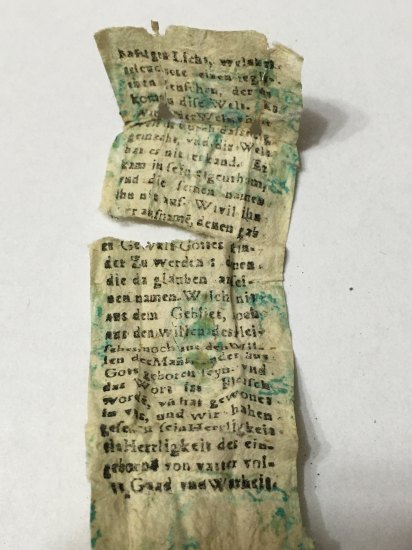 hafftiges Licht, welches
erleuchtete einen jegli-
chen Menschen, der da
komt in dise Welt. Es
war in der Welt, und die
Welt ist durch dasselbig
gemacht, vnd die Welt
hat es nit erkand. Er
kam in sein eigenthum,
vnd die seinen namen
ihn nit auf. Wivil ihn
aber aufname, denen gab
er Gewalt Gottes Kin-
der Zu werden: denen
die da glauben an sei-
nen namen. Welch nit
aus dem Geblüet, noch
aus den willen des flei-
sches, noch aus den Wil-
len der Mañs, onder aus
Gott geboren seyn. vnd
das Wort ist fleisch
worde, vñ hat gewonet
in vns, und wir haben
gesehen sein Herrligkeit
als Herrligkeit des ein-
geborne von vatter vol-
ler Gnad vnd Warheit.